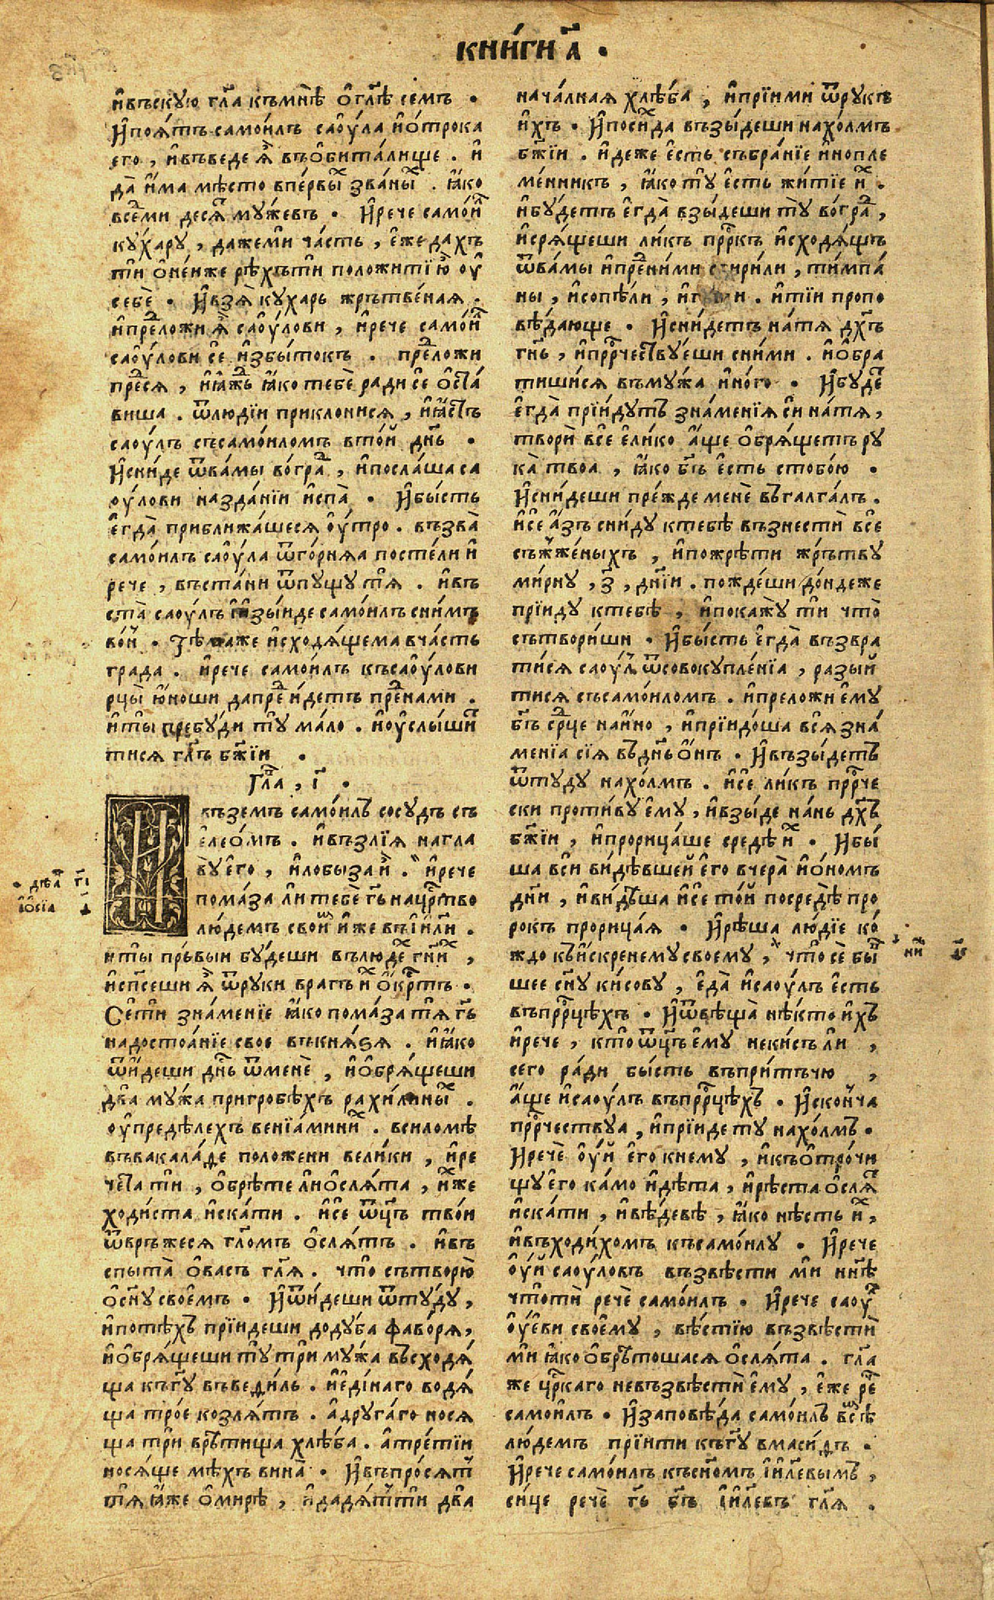 книги а҃ .
ивъскую гл҃а къмнѣ о гл҃ѣ семъ .
И поятъ самоилъ саоула и отрока
его , ивъведе я̀ въобиталище . и
да има мѣсто впервыⷯ званыⷯ . ꙗко
всеми десяⷮ мужевъ . И рече самоиⷧ
кухару , дажеми часть , еже дахъ
ти онеиже рѣхъти положитию оу
себе . И взя кухарь жрътвеная .
ипреⷣложи я̀ саоулови , ирече самоиⷧ
саоулови се избытокъ . преⷣложи
преⷣся , и ꙗжⷣь ꙗко тебе ради се остⷡа
виша . ѿ людіи приклонися , и ꙗстъ
саоулъ съсамоиломъ втой днь .
И сниде ѿвамы вограⷣ , ипослаша са
оулови назданіи испа . И бысть
егда приближашеся оутро . възва
самоилъ саоула ѿгорняа постели и
рече , въстани ѿпущу тя . ивъ
ста саоулъ изыиде самоилъ снимъ
воⷩ . Тѣмаже исходящема вчасть
града . ирече самоилъ късаоулови
рци юноши дапреⷣ идетъ преⷣнами .
иты пребуди ту мало . иоуслыши
тися гл҃ъ бж҃іи .
Гл҃а , і҃ .
къземъ самоилъ сосудъ съ
елеомъ . ивъзлія нагла
ву его , илобыза и . ирече
помаза ли тебе гь нацрⷭтво
людемъ своиⷨ иже въ іи҃ли .
иты првыи будеши вълюдеⷯ гн҃иⷯ ,
исп҃сеши я̀ ѿруки врагъ иⷯ окрⷭтъ .
Се ти знаменіе ꙗко помаза тя гь
надостоаніе свое въкнязя . и ꙗко
ѿидеши днь ѿмене , иобрящеши
два мужа пригробѣхъ рахилиныⷯ .
оупредѣлехъ веніаминиⷯ . всиломѣ
въвакаладе положени велики , ире
чета ти , обрѣте ли ослята , иⷯже
ходиста искати . исе ѿц҃ъ твои
ѿвръжеся гл҃омъ ослятъ . ивъ
спыта овасъ гл҃я . что сътворю
осн҃у своемъ . И ѿидеши ѿтуду ,
ипотѣхъ пріидеши додуба фаворя ,
иобрящеши ту три мужа въсходя
ща къгу въведиль . и единаго водя
ща трое козлятъ . адругаго нося
ща три врѣтища хлѣба . атретіи
носяще мѣхъ вина . И въпросятⷮ
тя ꙗже омирѣ , идадятⷮ ти два
началная хлѣба , ипріими ѿрукъ
ихъ . И посиⷯда възыдеши нахолмъ
бж҃іи . идеже есть събраніе инопле
менникъ , ꙗко ту есть житіе иⷯ .
ибудетъ егда взыдеши ту воград ,
исрящеши ликъ прⷪркъ исходящъ
ѿвамы ипреⷣними свирили , тимпа
ны , исопѣли , игусли . итіи пропо
вѣдающе . И снидетъ натя дх҃ъ
гнь , ипрⷪрчествуеши сними . иобра
тишися въмужа иного . И будеⷮ
егда пріидутъ знаменія си натя ,
твори все елико аще обрящетъ ру
ка твоа , ꙗко бг҃ъ есть стобою .
И снидеши прежде мене въгалгалъ .
исе азъ сниду ктебѣ възнести все
съжженыхъ , ипожрѣти жрътву
мирну , з҃ , дніи . пождеши дондеже
пріиду ктебѣ , ипокажу ти что
сътвориши . И бысть егда възвра
тися саоулъ ѿсовокупленіа , разый
тися съсамоиломъ . ипреложи ему
бг҃ъ срⷣце наино , ипріидоша вся зна
меніа сіа въднь онъ . И възыдетъ
ѿтуду нахолмъ . исе ликъ прⷪрче
ски противу ему , ивзыде нань дх҃ъ
бж҃іи , ипрорицаше средѣ иⷯ . И бы
ша вси видѣвшей его вчера иономъ
дни , ивидѣша исе той посредѣ про
рокъ прорицая . И рѣша людіе ко
ждо къискренему своему , что се бы
шее сн҃у кисову , еда исаоулъ есть
въпрⷪрцѣхъ . И ѿвѣща нѣкто ихъ
ирече , кто ѿц҃ъ ему некисъ ли ,
сего ради бысть въпритъчю ,
аще исаоулъ въпрⷪрцѣхъ . И сконча
прⷪрчествуа , ипріиде ту нахолмъ .
И рече оуй его кнему , икъотрочи
щу его камо идѣта , ирѣста осляⷮ
искати , ивѣдевѣ , ꙗко нѣсть иⷯ ,
ивъходихомъ късамоилу . И рече
оуй саоуловъ възвѣсти ми нн҃ѣ
чтоти рече самоилъ . И рече саоуⷧ
оуеви своему , вѣстію възвѣсти
ми ꙗко обрѣтошася ослята . гл҃а
же црⷭкаго невъзвѣсти ему , еже реⷱ
самоилъ . И заповѣда самоилъ всѣⷨ
людемъ пріити къгу вмасифъ .
И рече самоилъ късн҃омъ іил҃евымъ ,
сице рече гь бг҃ъ іил҃евъ гл҃я .
дѣаⷩ гі҃